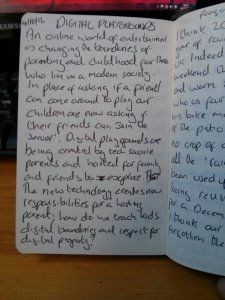 4/10/12 DIGITAL PLAYGROUNDS
An online world of entertainment
is changing the boundaries of
parenting and childhood for those
who live in a modern society.
In place of asking if a friend
can come around to play our
children are now asking if
their friends can join the
server. Digital playgrounds are
being created by tech savvie
parents and hosted for family
and friends to explore.
The new technology creates new
responsibilities for a hosting
parent, how do we teach kids
digital boundaries and respect for
digital property?
forgo
think 20
year of rain
we indeed
weekend o
and warm
who as far
his bike m
of the patio
no crop of
all the 'rain
been used
being reus
for a Decem
I think our
forgotten the